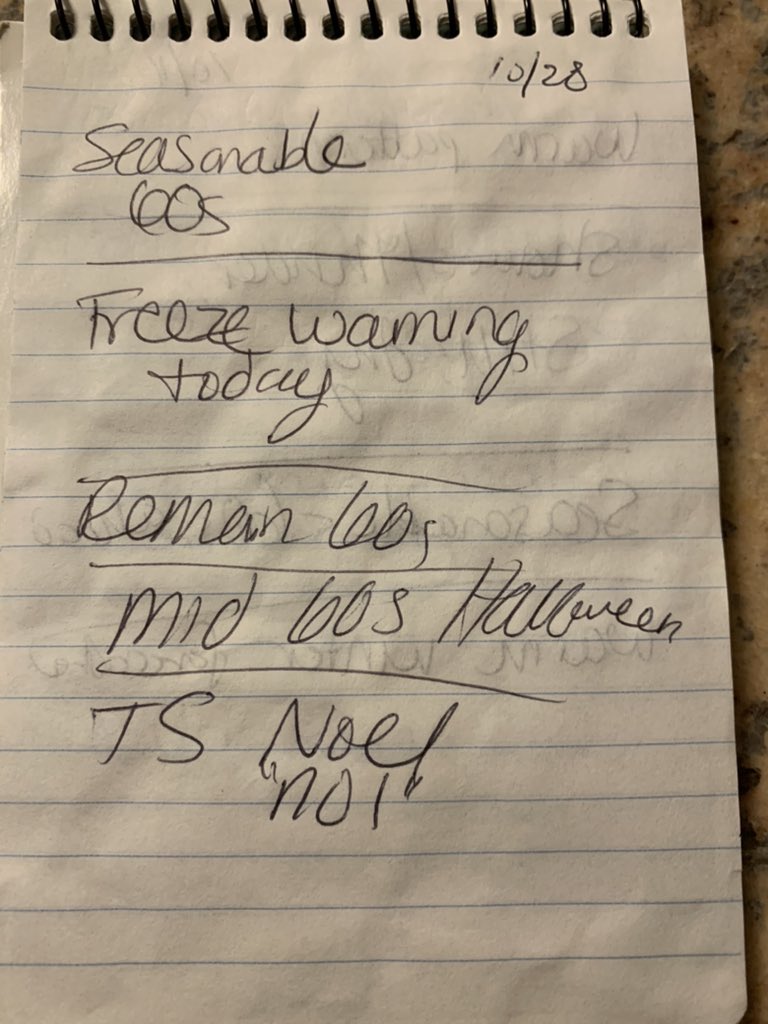 10/28
Seasonable
60s
Freeze warning
today
Remain 60s
mid 60s Halloween
TS Noel
"nol"